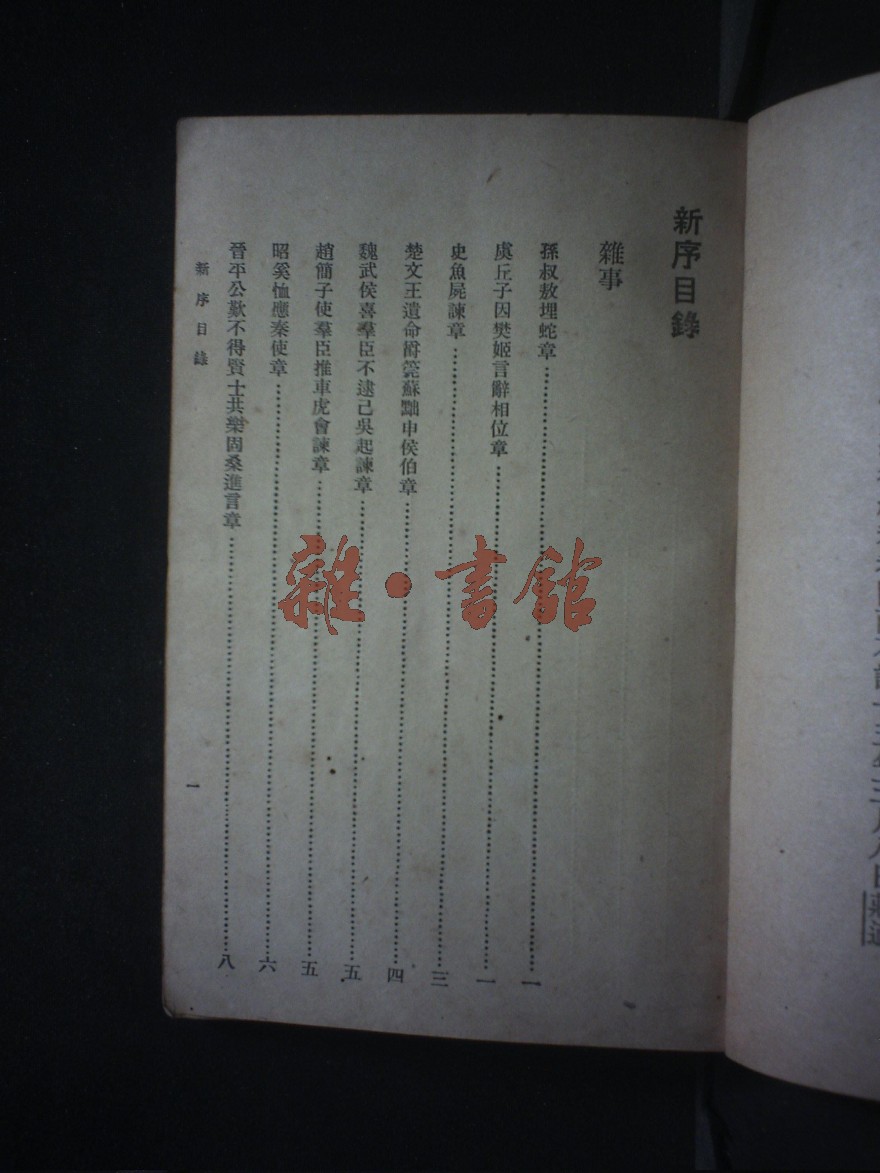 新序目錄
雜事
孫叔敖埋蛇章……一
虞丘子因樊姬言辭相位章……一
史魚屍諫章……三
楚文王遺命爵筦蘇黜申侯伯章……四
魏武侯喜羣臣不逮己吳起諫章……五
趙簡子使羣臣推車虎會諫章……五
昭奚恤應秦使章……六
晉平公歎不得賢士共樂固桑進言章……八
新序目錄
一
雜·書館